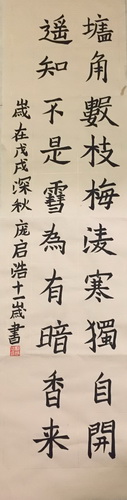 墻角數枝梅淩寒獨自開
遥知不是雪為有暗香来
歲在戊戌深秋庞启浩十一歲書